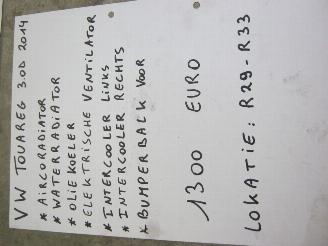 VW TOUAREG 3.0D 2014
* AIRCORADIATOR
* WATERRADIATOR
* OLIEKOELER
* ELEKTRISCHE VENTILATOR
* INTERCOOLER LINKS
* INTERCOOLER RECHTS
* BUMPERBALK VOOR
1300 EURO
LOKATIE: R29-R33